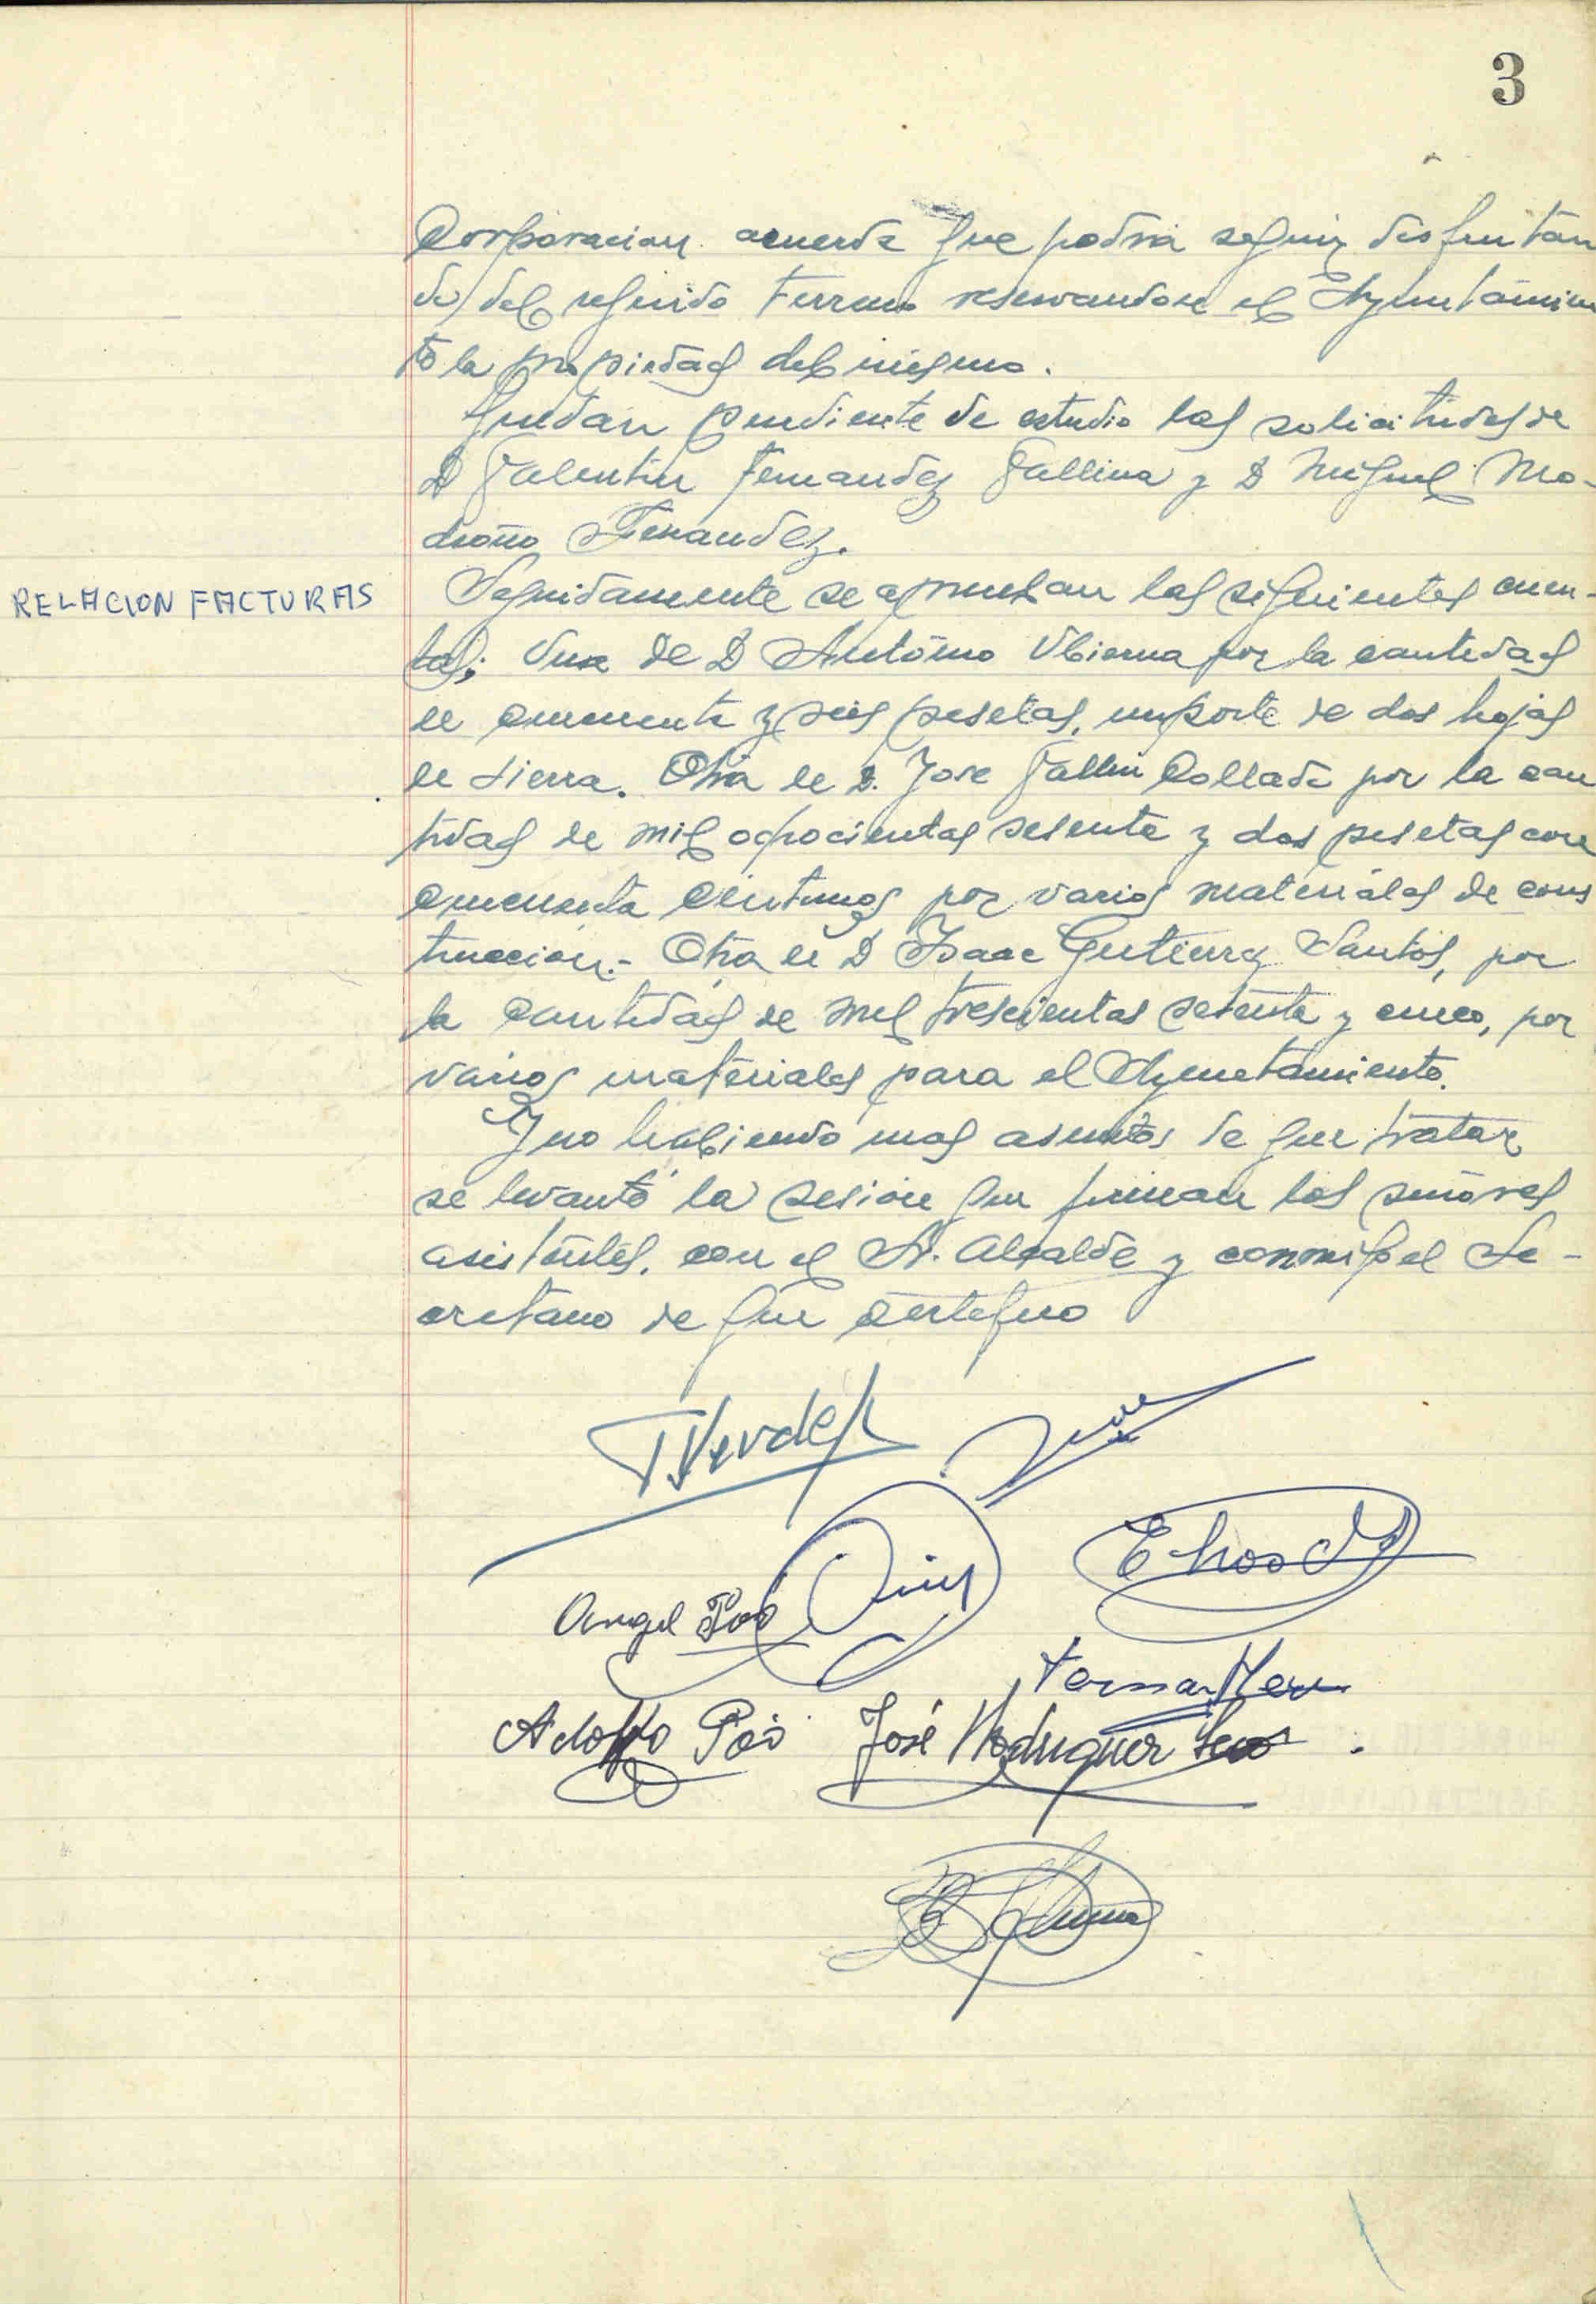 3
Corporacion acuerda que podra seguir disfrutan
do del referido terreno reservandose el Ayuntamien
to la propiedad del mismo.
Quedan pendiente de estudio las solicitudes de
D Valentin Fernandez Gallina y D Miguel Mo-
droño Fernandez.
RELACION FACTURAS
Seguidamente se aprueban las siguientes cuen-
tas; Una de D Antonio Ubierna por la cantidad
de cincuenta y seis pesetas, importe de dos hojas
de sierra. Otra de D. Jose Gallin Collada por la can
tidad de mil ochocientas sesenta y dos pesetas con
cincuenta centimos por varios materiales de cons
truccion.- Otra de D Isaac Gutierrez Santos, por
la cantidad de mil trescientas setenta y cinco, por
varios materiales para el Ayuntamiento.
Y no habiendo mas asuntos de que tratar
se levantó la sesion que firman los señores
asistentes, con el Sr. Alcalde y conmigo el Se-
cretario de que certifico
Angel Poo
Adolfo Poo José Rodriguez